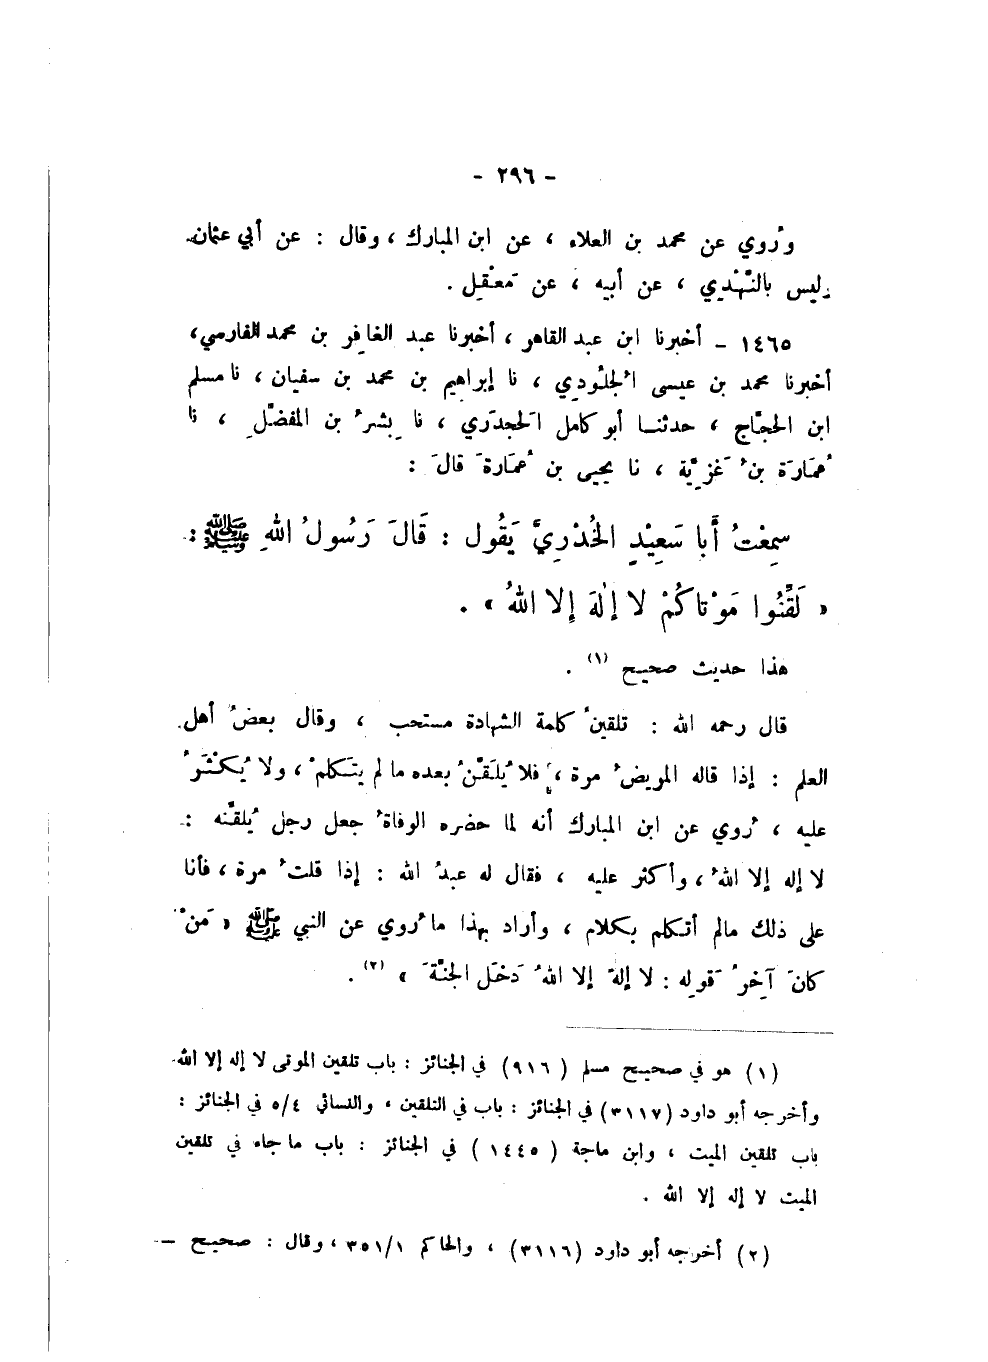 - ٢٩٦ -
ورُوي عن محمد بن العلاء ، عن ابن المبارك ، وقال : عن أبي عثمان
وليس بالنَّهْدِي ، عن أبيه ، عن مَعْقِل .
١٤٦٥ - أخبرنا ابن عبد القاهر ، أخبرنا عبد الغافِر بن محمد الفارسي،
أخبرنا محمد بن عيسى الجُلُودي ، نا إبراهيم بن محمد بن سفيان ، نا مسلم
ابن الحجَّاج ، حدثنا أبو كامل الجَحدَري ، نا بِشرُ بن المفضَّلِ ، نا
عُمَارَة بنُ غَزِيَّة ، نا يحيى بن عُمَارةَ قالَ :
سمِعْتُ أَبا سَعِيْدٍ الخُدْرِيَّ يَقُول : قَالَ رَسُولُ اللهِ ﷺ :
« لَقِّنُوا مَوْتاكُمْ لا إلٰهَ إلا اللهُ » .
هذا حديث صحيح (١) .
قال رحمه الله : تلقينُ كلمة الشهادة مستحب ، وقال بعضُ أهل
العلم : إذا قاله المريضُ مرة ، فلا يُلَقَّنُ بعده ما لم يتكلمْ ، ولا يُكْثَرُ
عليه ، رُوي عن ابن المبارك أنه لما حضره الوفاةُ جعل رجل يُلقِّنه :
لا إله إلا اللهُ ، وأكثر عليه ، فقال له عبدُ الله : إذا قلتُ مرة ، فأنا
على ذلك مالم أتكلم بكلام ، وأراد بهذا ما رُوي عن النبي ﷺ « مَنْ
كانَ آخِرُ قَولِه : لا إلهَ إلا اللهُ دَخَل الجنَّةَ » (٢) .
(١) هو في صحيح مسلم ( ٩١٦ ) في الجنائز : باب تلقين الموتى لا إله إلا الله
وأخرجه أبو داود (٣١١٧) في الجنائز : باب في التلقين ، والنسائي ٥/٤ في الجنائز :
باب تلقين الميت ، وابن ماجة ( ١٤٤٥ ) في الجنائز : باب ما جاء في تلقين
الميت لا إله إلا الله .
(٢) أخرجه أبو داود (٣١١٦) ، والحاكم ٣٥١/١ ، وقال : صحيح –